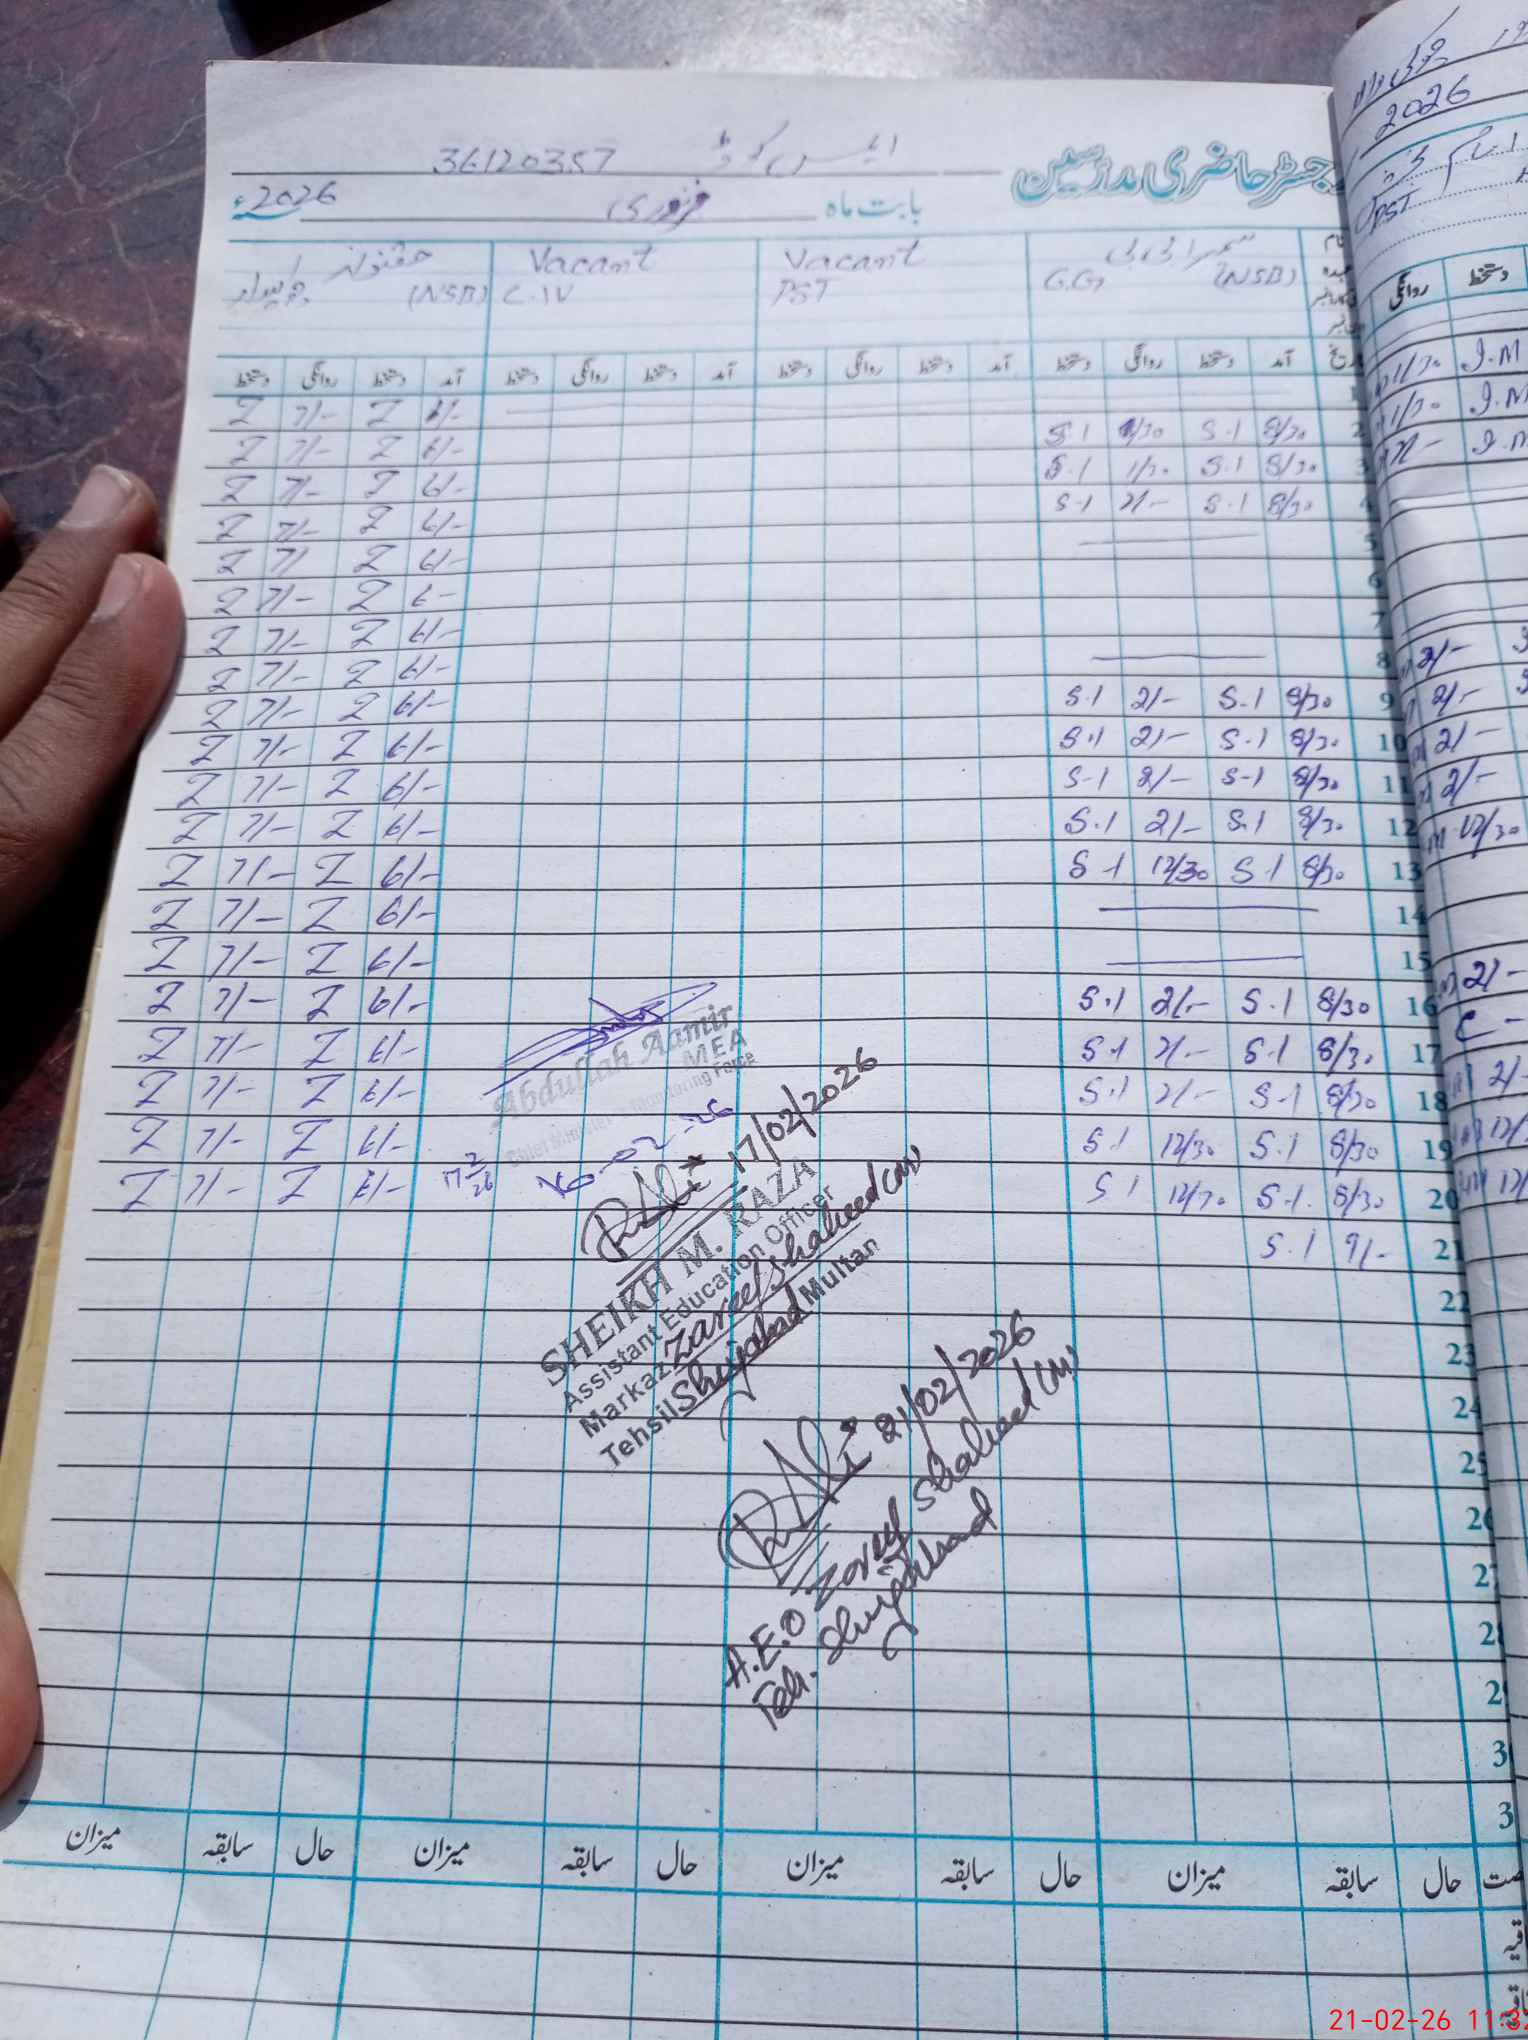 رجسٹر حاضری مدرسین
ایمس کوڈ 36120357
بابت ماہ فروری 2026ء
(NSB) G.G
Vacant
PST
Vacant
C.IV
(NSB)
تاریخ آمد دستخط روانگی دستخط آمد دستخط روانگی دستخط آمد دستخط روانگی دستخط آمد دستخط روانگی دستخط
1 6/- Z 7/- Z
2 8/30 S.1 1/30 S.1 6/- Z 7/- Z
3 8/30 S.1 1/30 S.1 6/- Z 7/- Z
4 8/30 S.1 2/- S.1 6/- Z 7/- Z
5 6/- Z 7/ Z
6 6- Z 7/- Z
7 6/- Z 7/- Z
8 6/- Z 7/- Z
9 8/30 S.1 2/- S.1 6/- Z 7/- Z
10 8/30 S.1 2/- S.1 6/- Z 7/- Z
11 8/30 S-1 2/- S-1 6/- Z 7/- Z
12 8/30 S.1 2/- S.1 6/- Z 7/- Z
13 8/30 S.1 12/30 S.1 6/- Z 7/- Z
14 6/- Z 7/- Z
15 6/- Z 7/- Z
16 8/30 S.1 2/- S.1 6/- Z 7/- Z
17 8/30 S.1 2/- S.1 6/- Z 7/- Z
18 8/30 S.1 2/- S.1 6/- Z 7/- Z
19 8/30 S.1 12/30 S.1 6/- Z 7/- Z
20 8/30 S.1 12/30 S.1 6/- Z 7/- Z
21 9/- S.1
22
23
24
25
26
27
28
Abdullah Aamir
MEA
Chief Minister's Monitoring Force
16-02-26
17/02/2026
SHEIKH M. RAZA
Assistant Education Officer
Markaz Zareef Shaheed (M)
Tehsil Shujabad Multan
21/02/2026
A.E.O Zareef Shaheed (M)
Teh. Shujabad
حال سابقہ میزان حال سابقہ میزان حال سابقہ میزان حال سابقہ میزان
2026
PST
روانگی دستخط
1/30 J.M
1/30 J.M
2/-
2/-
2/-
2/-
12/30
2/-
21-02-26 11:3